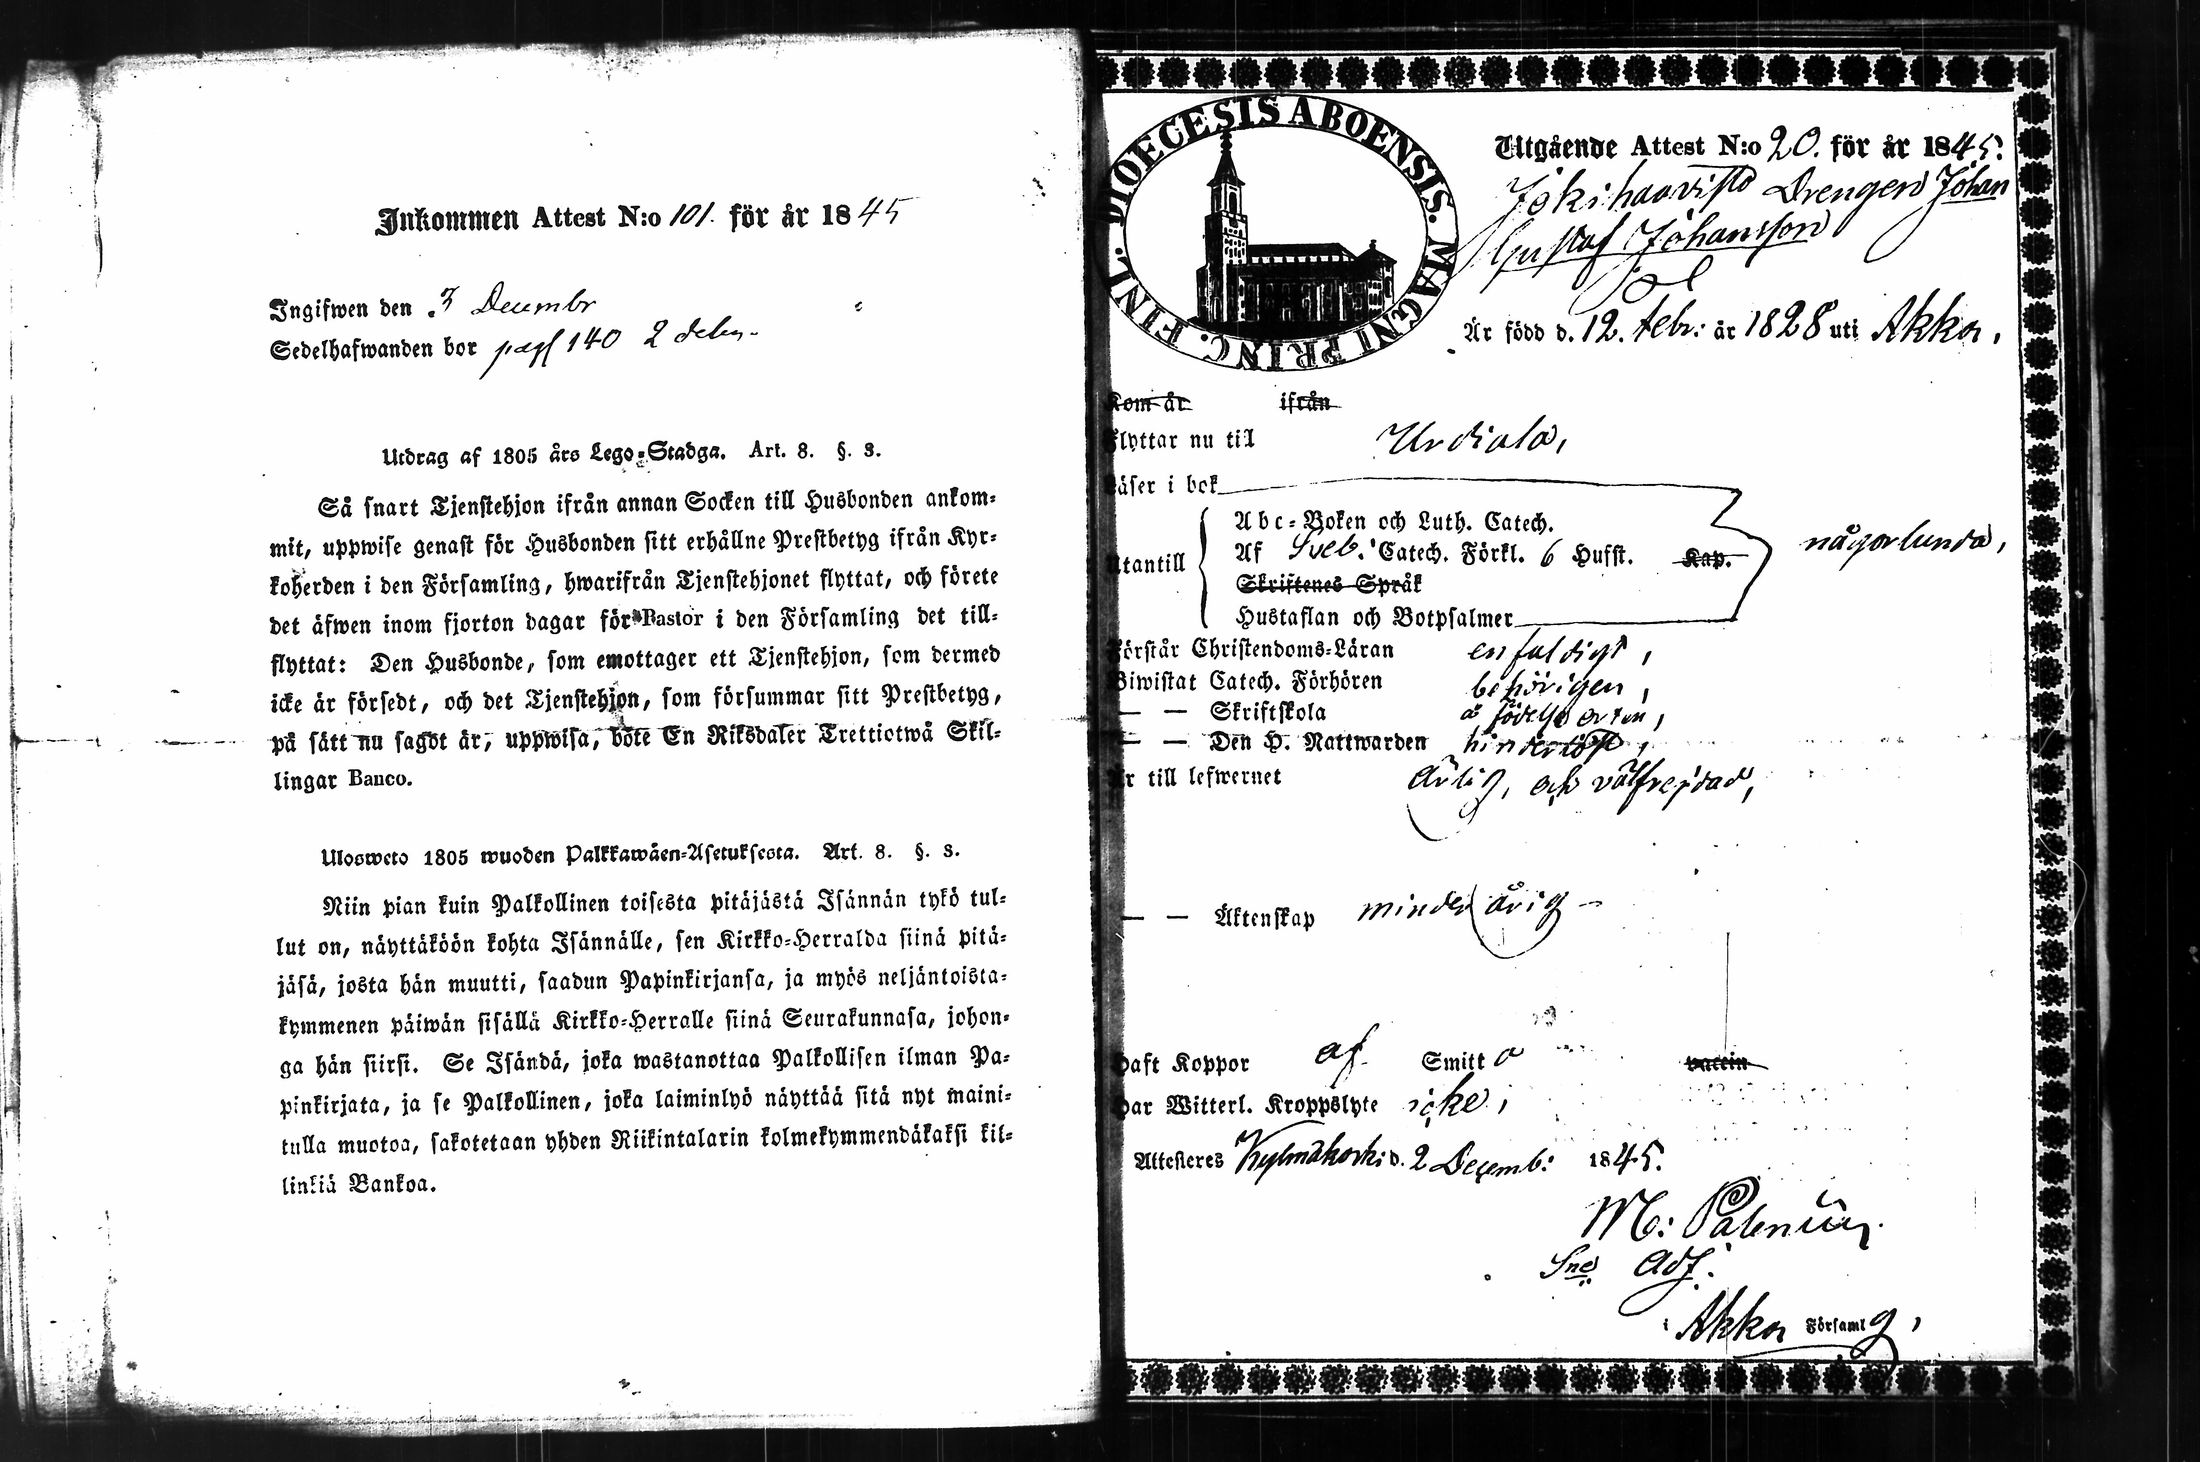 Inkommen Attest N:o 101. för år 1845
Ingifwen den 3 Decembr
Sedelhafwanden bor pag 140 2 delen
Utdrag af 1805 års Lego-Stadga. Art. 8. §. 3.
Så snart Tjenstehjon ifrån annan Socken till Husbonden ankom-
mit, uppwise genast för Husbonden sitt erhållne Prestbetyg ifrån Kyr-
koherden i den Församling, hwarifrån Tjenstehjonet flyttat, och förete
det äfwen inom fjorton dagar för Pastor i den Församling det till-
flyttat: Den Husbonde, som emottager ett Tjenstehjon, som dermed
icke är försedt, och det Tjenstehjon, som försummar sitt Prestbetyg,
på sätt nu sagdt är, uppwisa, böte En Riksdaler Trettiotwå Skil-
lingar Banco.
Ulosweto 1805 wuoden Palkkawäen-Asetuksesta. Art. 8. §. 3.
Niin pian kuin Palkollinen toisesta pitäjästä Isännän tykö tul-
lut on, näyttäköön kohta Isännälle, sen Kirkko-Herralda siinä pitä-
jäsä, josta hän muutti, saadun Papinkirjansa, ja myös neljäntoista-
kymmenen päiwän sisällä Kirkko-Herralle siinä Seurakunnasa, johon-
ga hän siirsi. Se Isändä, joka wastanottaa Palkollisen ilman Pa-
pinkirjata, ja se Palkollinen, joka laiminlyö näyttää sitä nyt maini-
tulla muotoa, sakotetaan yhden Riikintalarin kolmekymmendäkaksi kil-
linkiä Bankoa.
DIOECESIS ABOENSIS. MAGNI PRINC. FINL.
Utgående Attest N:o 20. för år 1845.
Jokihaavisto Drengen Johan
Gustaf Johansson
Är född d. 12. Febr: år 1828 uti Akka,
Kom år ifrån
Flyttar nu till Urdiala,
Läser i bok
Abc-Boken och Luth. Catech.
Utantill Af Sveb. Catech. Förkl. 6 Hufst. Kap. någorlunda,
Skriftenes Språk
Hustaflan och Botpsalmer
Förstår Christendoms-Läran enfaldigt,
Biwistat Catech. Förhören behörigen,
— — Skriftskola å födelseorten,
— — Den H. Nattwarden hinderlöst,
Är till lefwernet ärlig, och välfrejdad,
— — Äktenskap minderårig —
Haft Koppor af Smitta vaccin
Har Witterl. Kroppslyte icke,
Attesteres Kylmäkoski d. 2 Decemb: 1845.
M: Palenius
Sne Adj.
i Akka Församlg,